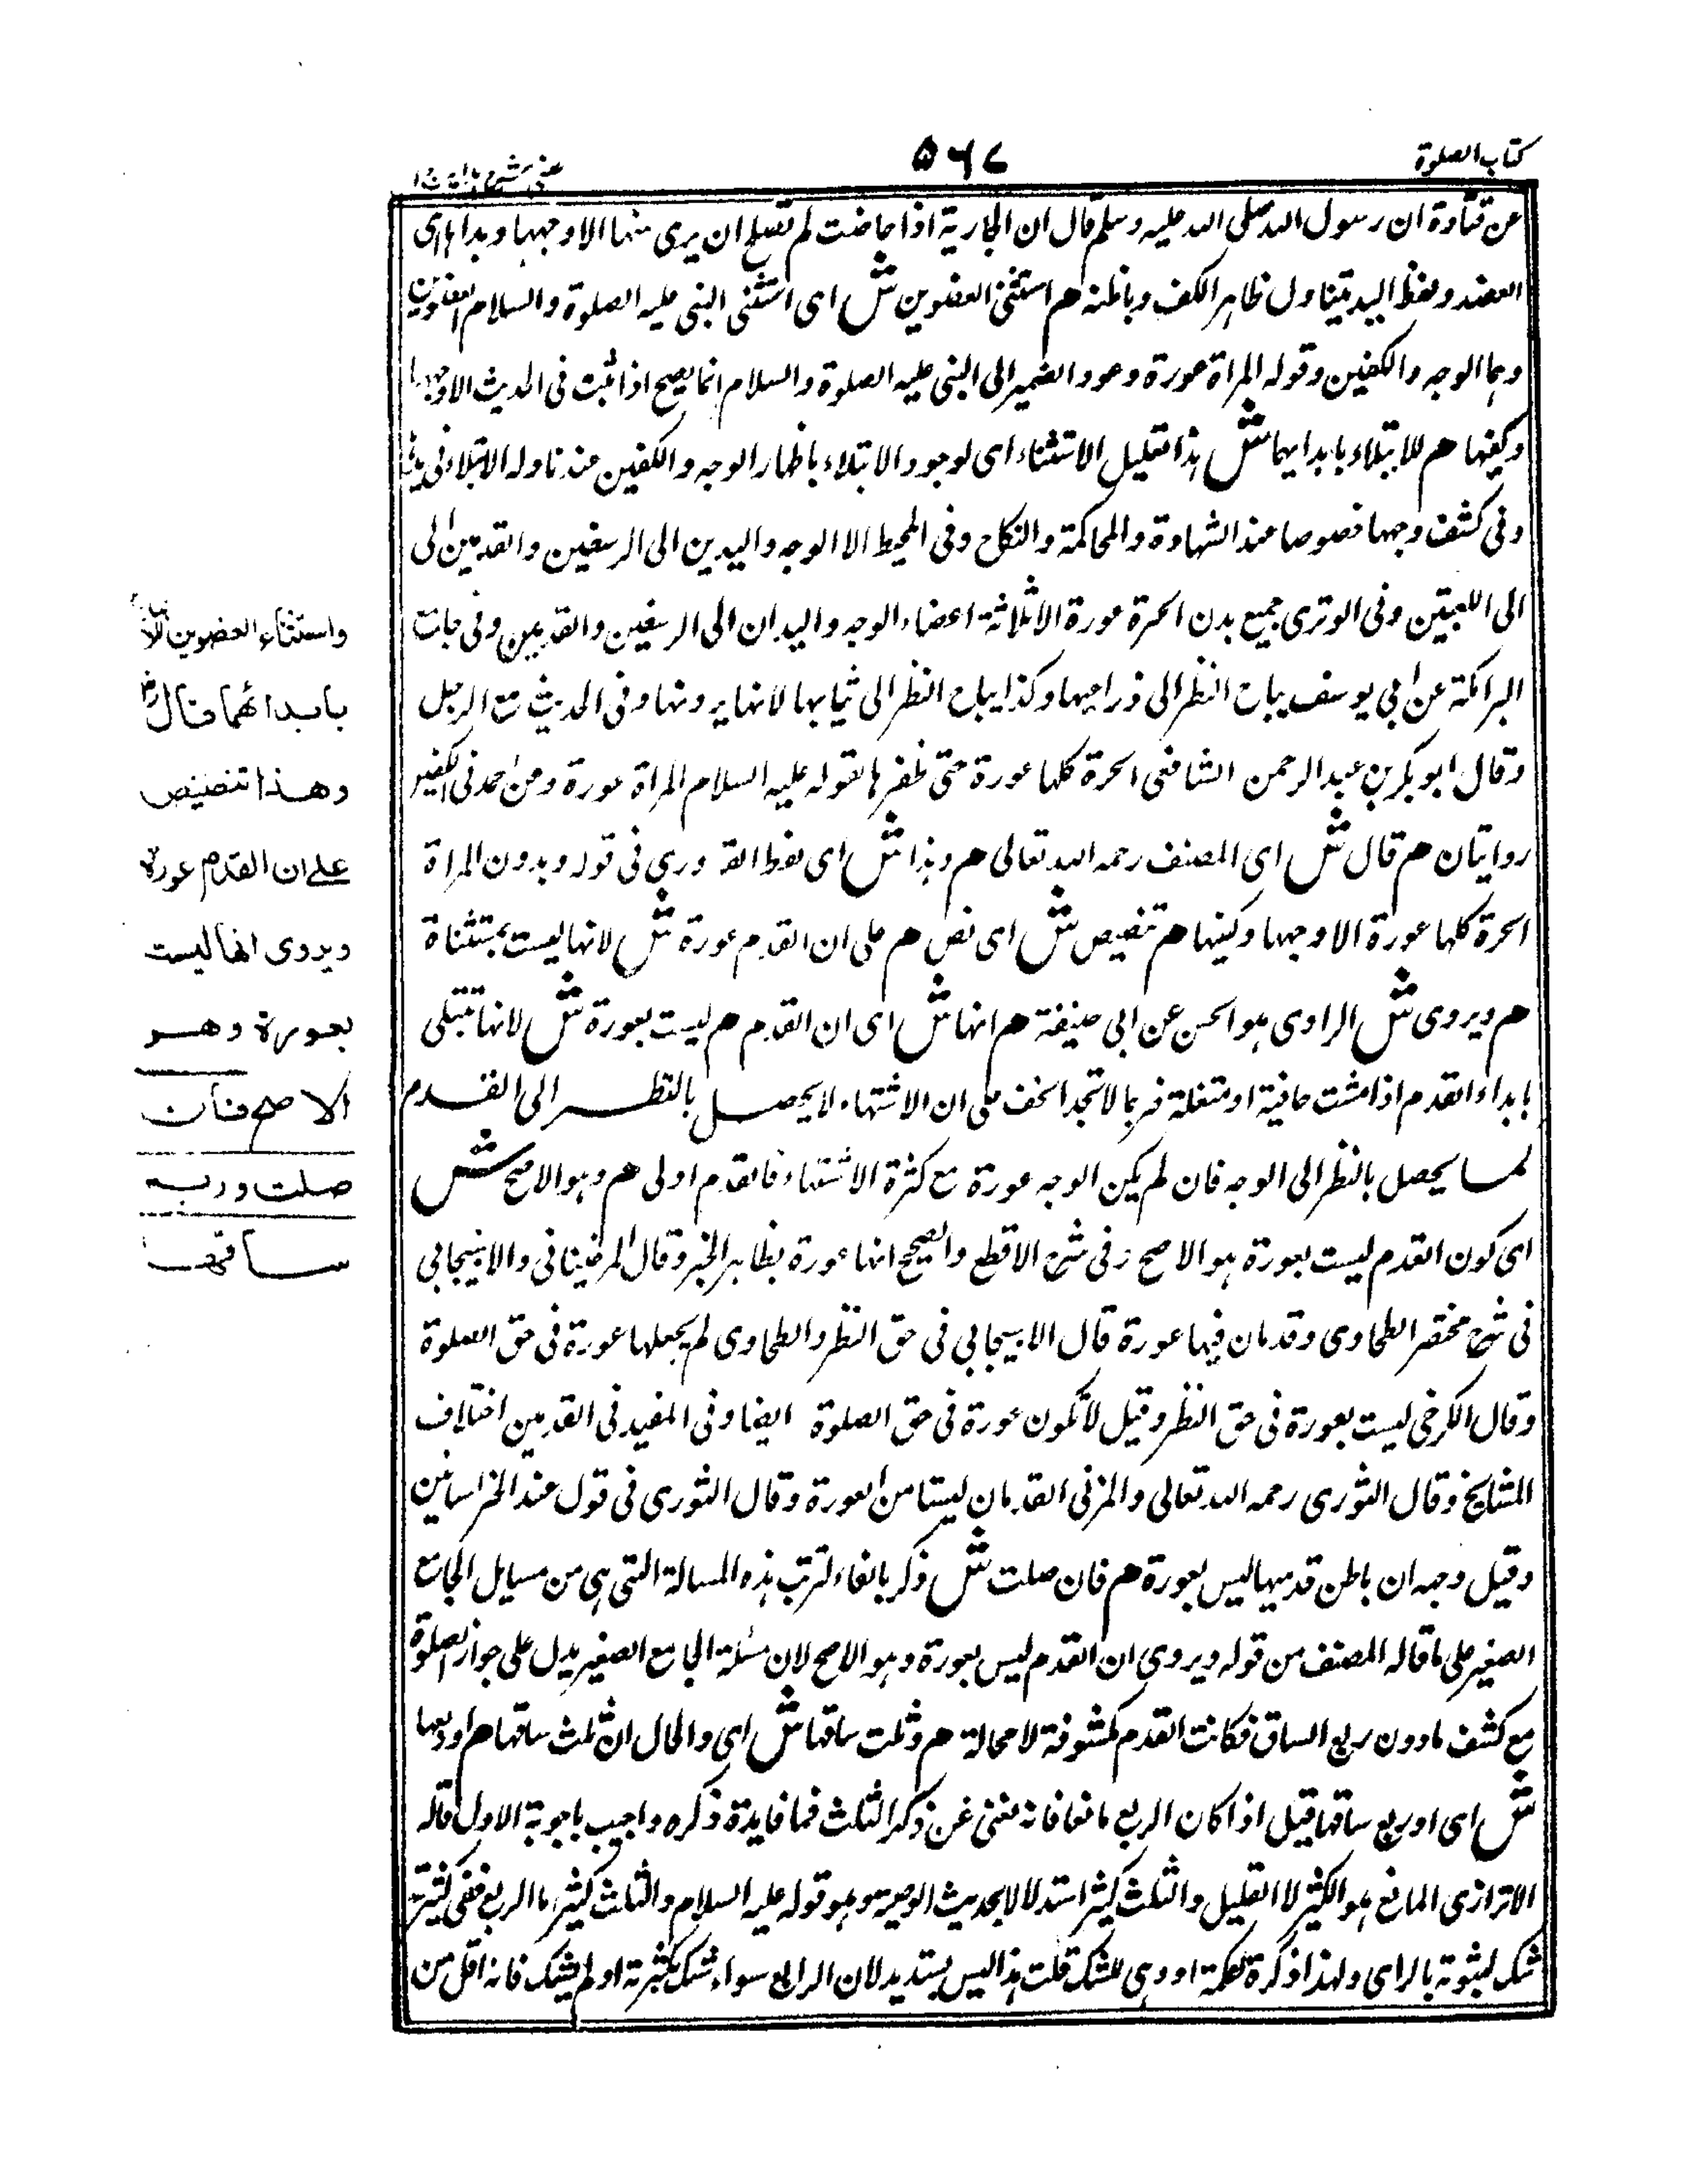 كتاب الصلوة
٥٦٧
عينى شرح هداية ج ١
عن قتادة ان رسول الله صلى الله عليه وسلم قال ان الجارية اذا حاضت لم تصلح ان يرى منها الا وجهها ويداها الى
العضد ولفظ اليد يتناول ظاهر الكف وباطنه هم استثنى العضوين ش اى استثنى النبى عليه الصلوة والسلام العضوين
وهما الوجه والكفين وقوله المراة عورة وعود الضمير الى النبى عليه الصلوة والسلام انما يصح اذا ثبت فى الحديث الا وجهها
وكفيها هم للابتلاء بابدايهما ش هذا تعليل الاستثناء اى لوجود الابتلاء باظهار الوجه والكفين عند تناوله الابتلاء فى
وفى كشف وجهها خصوصا عند الشهادة والمحاكمة والنكاح وفى المحيط الا الوجه واليدين الى الرسغين والقدمين الى
الى اللعبتين وفى الوترى جميع بدن الحرة عورة الا ثلاثة اعضاء الوجه واليدان الى الرسغين والقدمين وفى جامع
البرامكة عن ابي يوسف يباح النظر الى ذراعيها وكذا يباح النظر الى ثيابها لانها يرونها وفى الحديث مع الرجل
وقال ابو بكر بن عبد الرحمن الشافعى الحرة كلها عورة حتى ظفرها لقوله عليه السلام المراة عورة ومن احمد فى الكفين
روايتان هم قال ش اى المصنف رحمه الله تعالى هم وهذا ش اى لفظ القدورى فى قوله وبدون المراة
الحرة كلها عورة الا وجهها وكفيها هم تنصيص ش اى نص هم على ان القدم عورة ش لانها ليست بمستثناة
هم ويروى ش الراوى هو الحسن عن ابى حنيفة هم انها ش اى ان القدم هم ليست بعورة ش لانها تبتلى
بابداء القدم اذا مشت حافية او متنعلة فربما لا تجد الخف على ان الاشتهاء لا يحصل بالنظر الى القدم
كما يحصل بالنظر الى الوجه فان لم يكن الوجه عورة مع كثرة الاشتهاء فالقدم اولى هم وهو الاصح ش
اى كون القدم ليست بعورة هو الاصح وفى شرح الاقطع والصحيح انها عورة بظاهر الخبر وقال المرغينانى والاسبيجابى
فى شرح مختصر الطحاوى وقدمان فيها عورة قال الاسبيجابى فى حق النظر والطحاوى لم يجعلها عورة فى حق الصلوة
وقال الكرخى ليست بعورة فى حق النظر وقيل لا تكون عورة فى حق الصلوة ايضا وفى المفيد فى القدمين اختلاف
المشايخ وقال الثورى رحمه الله تعالى والمزنى القدمان ليستا من العورة وقال الثورى فى قول عند الخراسانين
وقيل وجه ان باطن قدميها ليس بعورة هم فان صلت ش ذكر بالفاء لترتب هذه المسالة التى هى من مسايل الجامع
الصغير على ما قاله المصنف من قوله ويروى ان القدم ليس بعورة وهو الاصح لان مسئلة الجامع الصغير يدل على جواز الصلوة
مع كشف ما دون ربع الساق فكانت القدم مكشوفة لا محالة هم وثلث ساقها ش اى والحال ان ثلث ساقها هم او ربعها
ش اى او ربع ساقها قيل اذا كان الربع مانعا فانه يغنى عن ذكر الثلث فما فايدة ذكره واجيب باجوبة الاول قاله
الاترازى المانع هو الكثير لا القليل والثلث كثير استدلالا بحديث الوصية وهو قوله عليه السلام والثلث كثير ما الربع ففى كثرته
شك لثبوته بالراى ولهذا ذكره بكلمة او وهى للشك قلت هذا ليس بسديد لان الرابع سواء شك بكثرته او لم يشك فانه اقل من
واستثناء العضوين للابتلاء
بابدائهما قال
وهذا تنصيص
على ان القدم عورة
ويروى انها ليست
بعورة وهو
الاصح فان
صلت وربع
ساقها